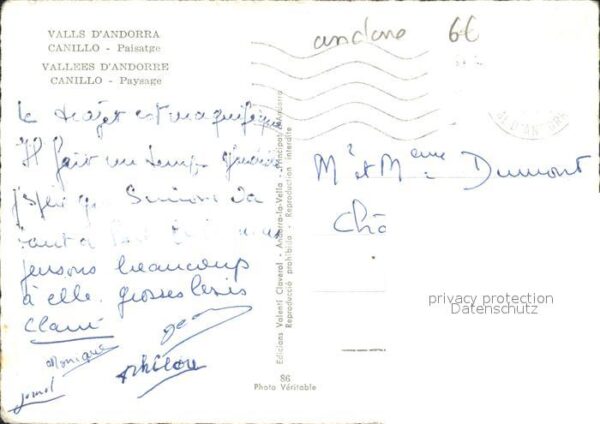 VALLS D'ANDORRA
CANILLO - Paisatge
VALLEES D'ANDORRE
CANILLO - Paysage
andorre 6€
le trajet est magnifique
Il fait un temps
j'espère que Simone va
tout à
pensons beaucoup
à elle. grosses bises
Claire
Monique
Philou
Mr et Mme Dumont
Châ
Edicions Valentí Claverol - Andorra-la-Vella - Principat d'Andorra
Reproducció prohibida - Reproduction interdite
86
Photo Véritable
privacy protection
Datenschutz